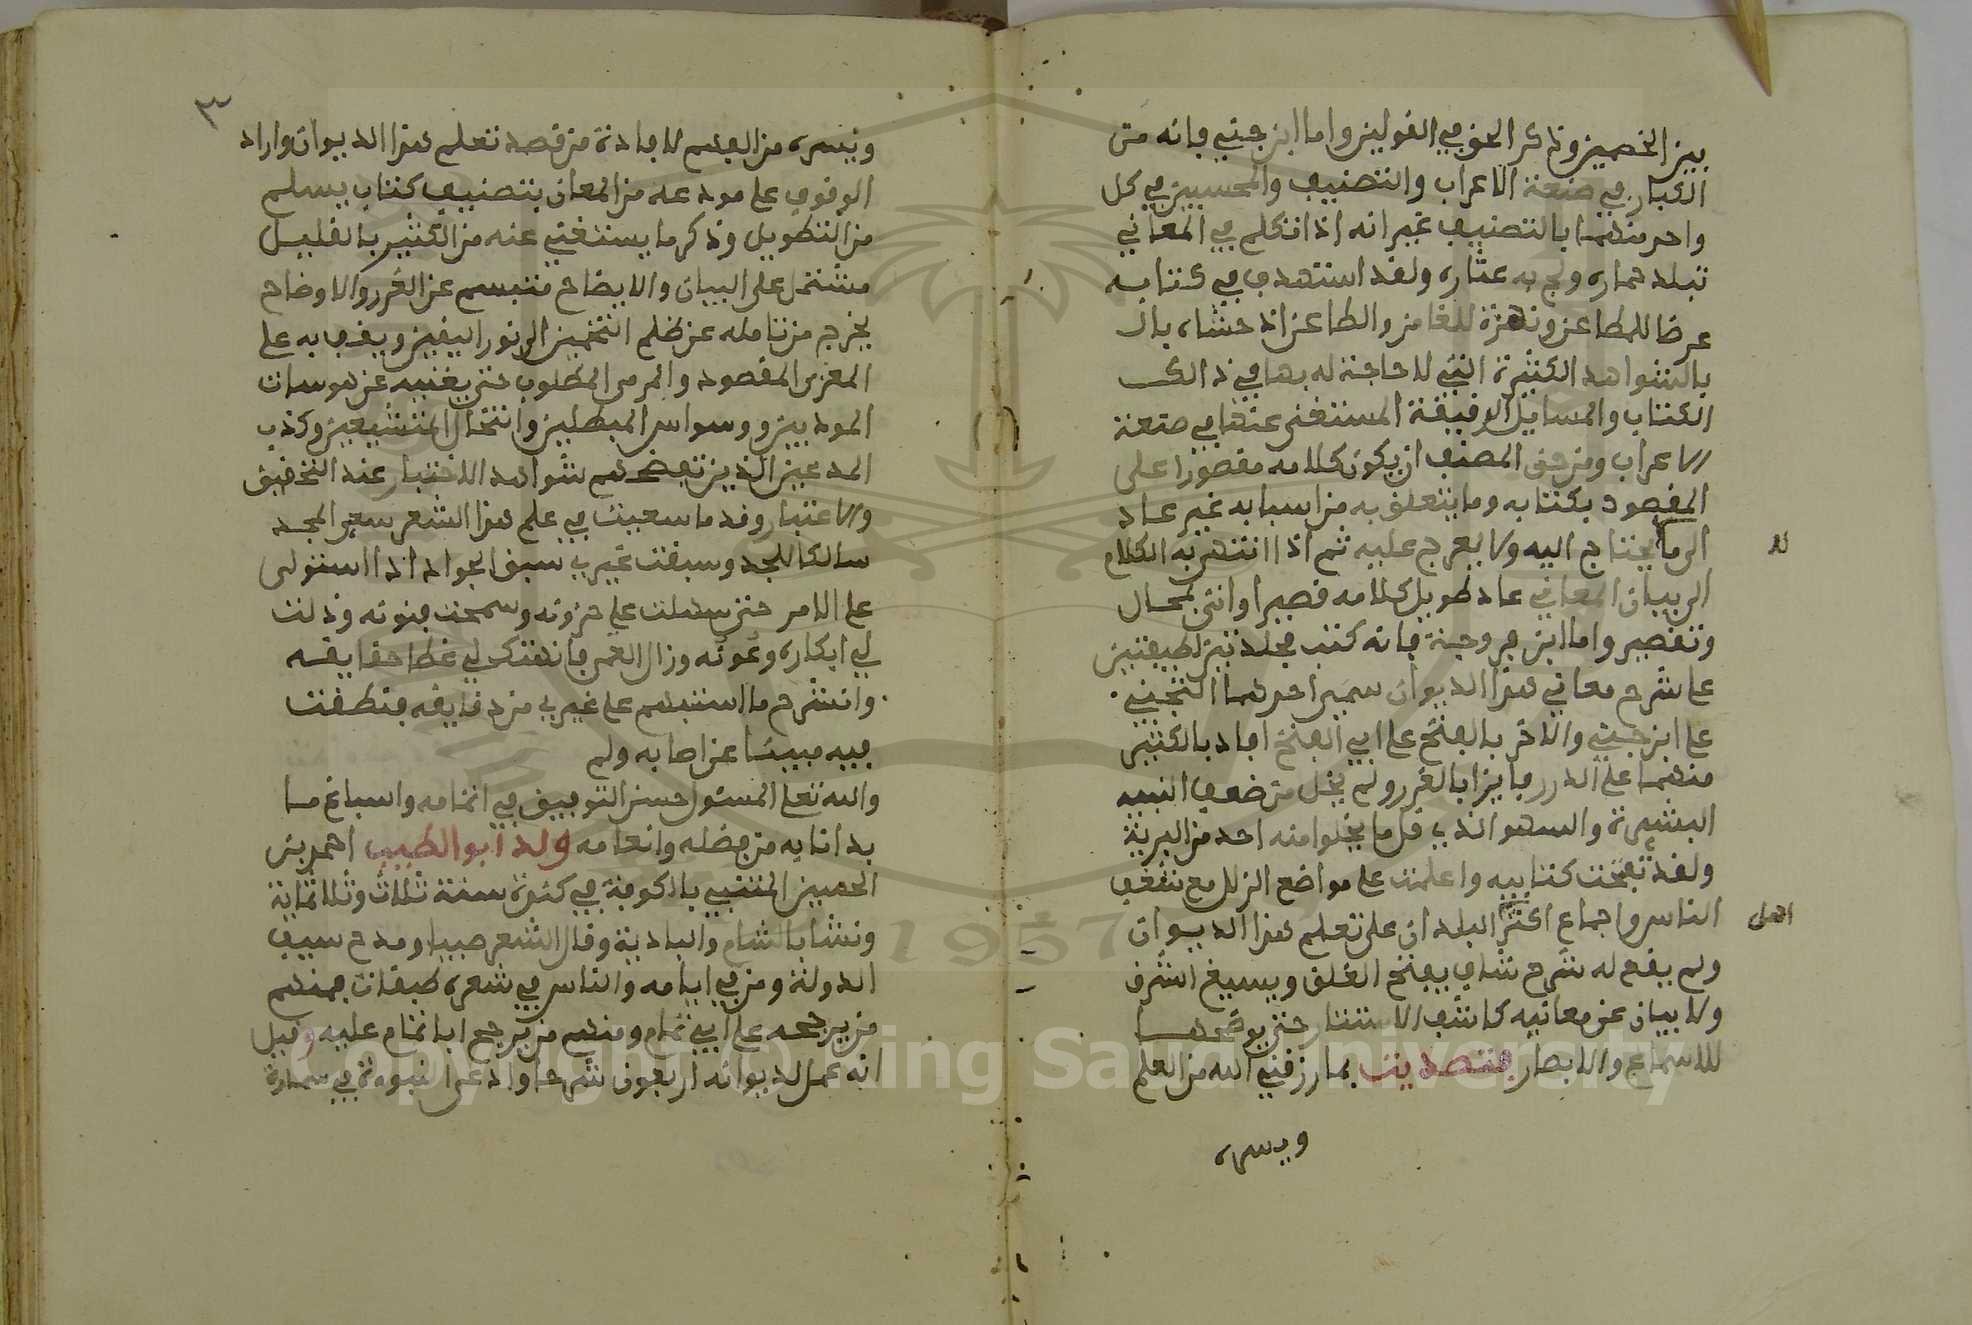 بين الخصمين وذكر الحق في القولين واما ابن جني فانه من
الكبار في صنعة الاعراب والتصنيف والمحسنين في كل
واحد منهما بالتصنيف غير انه اذا تكلم في المعاني
تبلد حماره ولج به عثاره ولقد استهدف في كتابه
عرضا للمطاعن ونهزة للغامز والطاعن اذ حشاه بال
بالشواهد الكثيرة التي لا حاجة له بها في ذالك
الكتاب والمسايل الدقيقة المستغنى عنها في صنعة
الاعراب ومن حق المصنف ان يكون كلامه مقصورا على
المقصود بكتابه وما يتعلق به من اسبابه غير عاد
الى ما يحتاج اليه ولا يعرج عليه ثم اذا انتهى به الكلام
لا
الى بيان المعاني عاد طويل كلامه قصيرا واتى بمحال
وتقصير واما ابن فروجة فانه كتب مجلدتين لطيفتين
على شرح معاني هذا الديوان سمى احدهما التجني
على ابن جني والاخر بالفتح على ابي الفتح افاد بالكثير
منهما على الدرر فايزا بالغرر ولم يخل من ضعف البنيه
البشرية والسهو الذي قل ما يخلوا منه احد من البرية
ولقد تصفحت كتابيه واعلمت على مواضع الزلل مع شغف
الناس واجماع اكثر البلدان على تعلم هذا الديوان
اهل
ولم يقع له شرح شاف يفتح الغلق ويسيغ الشرق
ولا بيان عن معانيه كاشف الاستتار حتى يوضحها
للاسماع والابصار فتصديت بما رزقني الله من العلم
ويسره
٣
ويسره من الفهم لافادة من قصد تعلم هذا الديوان واراد
الوقوف على مودعه من المعان بتصنيف كتاب يسلم
من التطويل وذكر ما يستغنى عنه من الكثير بالقليل
مشتمل على البيان والايضاح متبسم عن الغرر والاوضاح
يخرج من تامله عن ظلم التخمين الى نور اليقين ويقف به على
المغزى المقصود والمرمى المطلوب حتى يغنيه عن هوسات
المودبين ووسواس المبطلين وانتحال المتشبعين وكذب
المدعين الذين تفضحهم شواهد الاختبار عند التحقيق
والاعتبار وقد ما سعيت في علم هذا الشعر سعى المجد
سالكا للجد وسبقت غيري سبق الجواد اذا استولى
على الامر حتى سهلت على حزونه وسمحت فنونه وذلت
لي ابكاره وعونه وزال العمى فانهتك لي غطا حقايقه
وانشرح ما استبهم على غيري من دقايقه فنطقت
فيه مبينا عن اصابه ولم
والله تعلى المسئول حسن التوفيق في اتمامه واسباغ ما
بدانا به من فضله وانعامه ولد ابو الطيب احمد بن
الحسين المتنبي بالكوفة في كندة سنة ثلاث وثلاثماية
ونشا بالشام والبادية وقال الشعر صبيا ومدح سيف
الدولة ومن في ايامه والناس في شعره طبقات فمنهم
من يرجحه على ابي تمام ومنهم من يرجح ابا تمام عليه وقيل
انه عمل لديوانه اربعون شرحا وادعى النبوة في سماوة